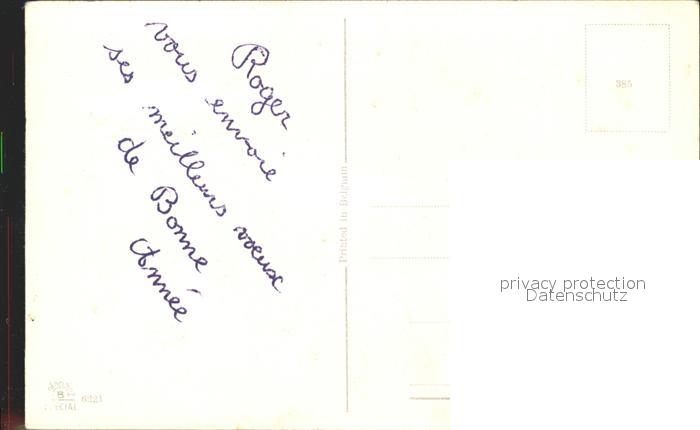 Roger
vous envoie
ses meilleurs voeux
de Bonne
Année
Printed in Belgium
385
privacy protection
Datenschutz
6221